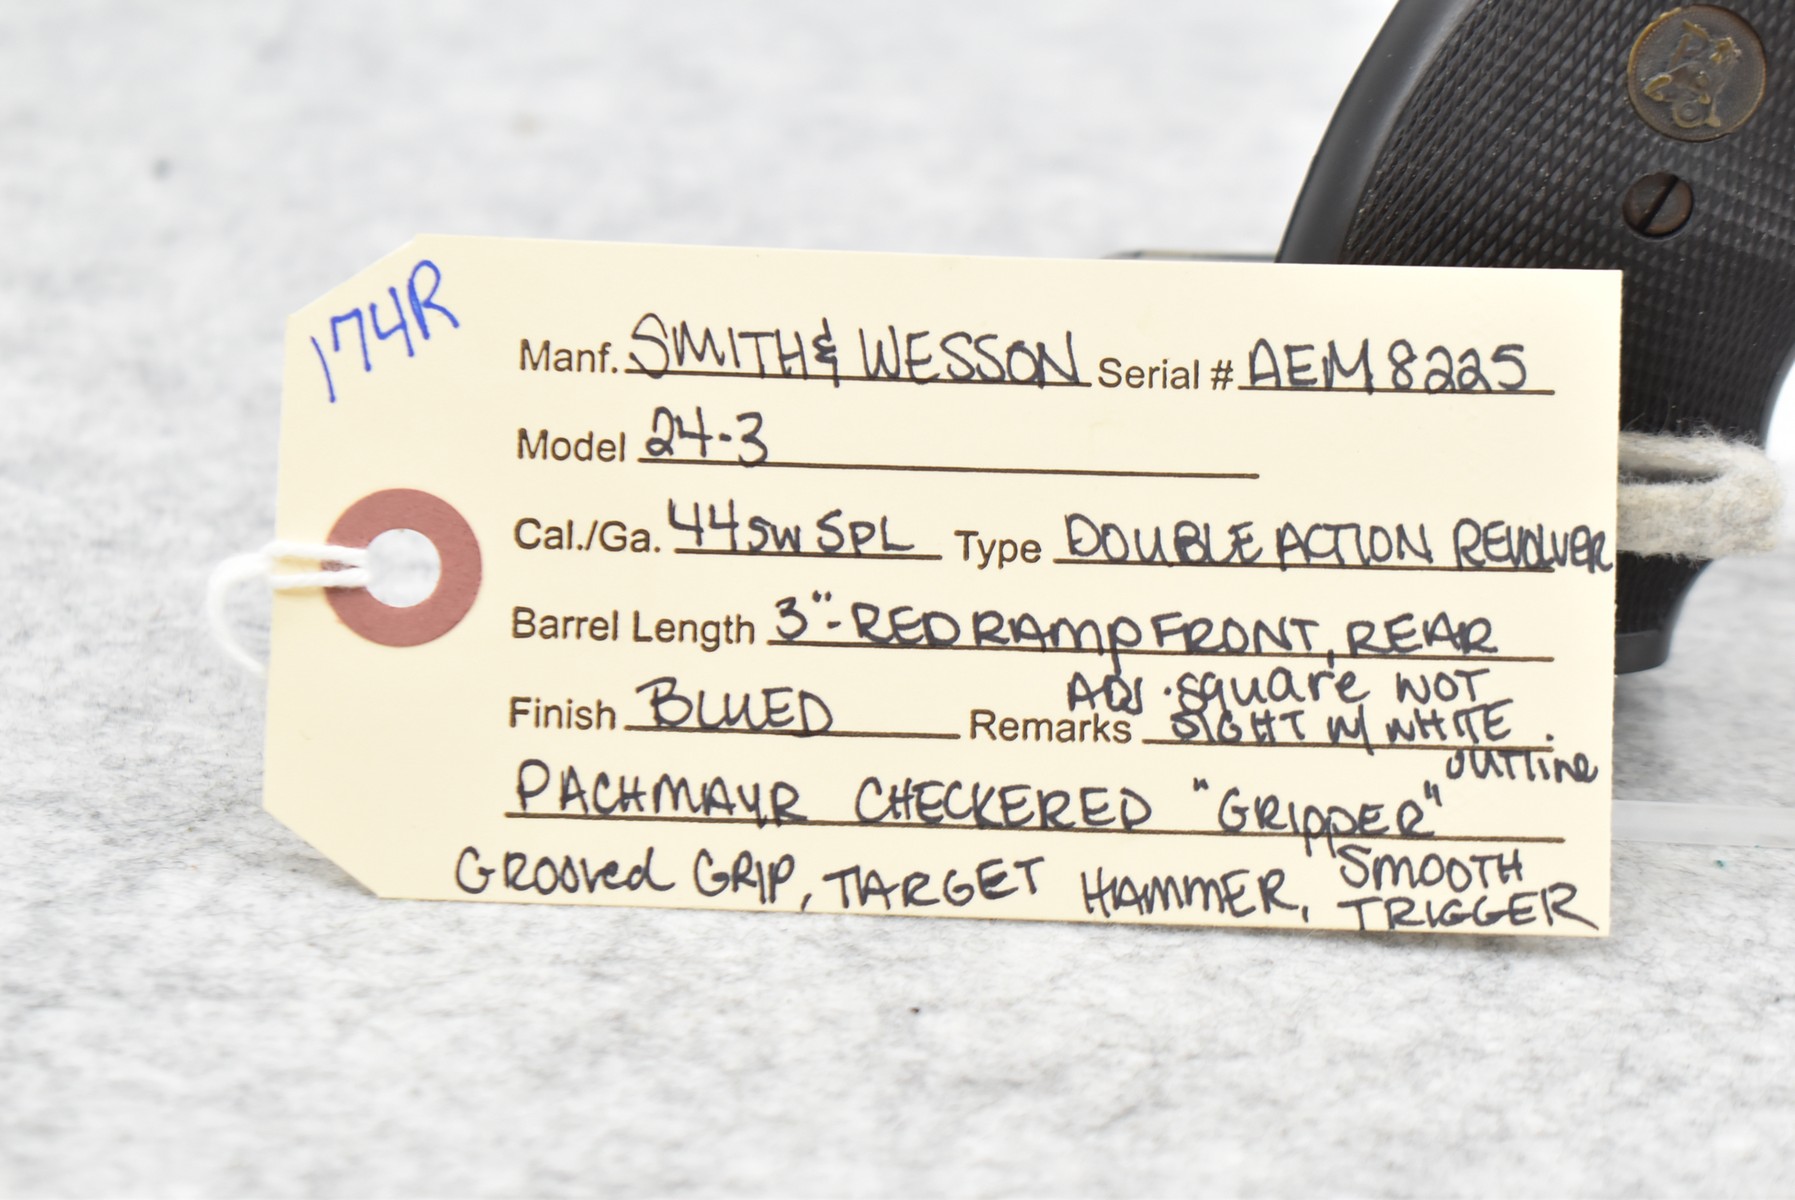 174R
Manf. SMITH & WESSON Serial # AEM8225
Model 24-3
Cal./Ga. 44 SW SPL Type DOUBLE ACTION REVOLVER
Barrel Length 3"-RED RAMP FRONT, REAR
ADJ. square NOT
Finish BLUED Remarks SIGHT W/ WHITE
OUTLINE
PACHMAYR CHECKERED "GRIPPER"
GROOVED GRIP, TARGET HAMMER, SMOOTH
TRIGGER